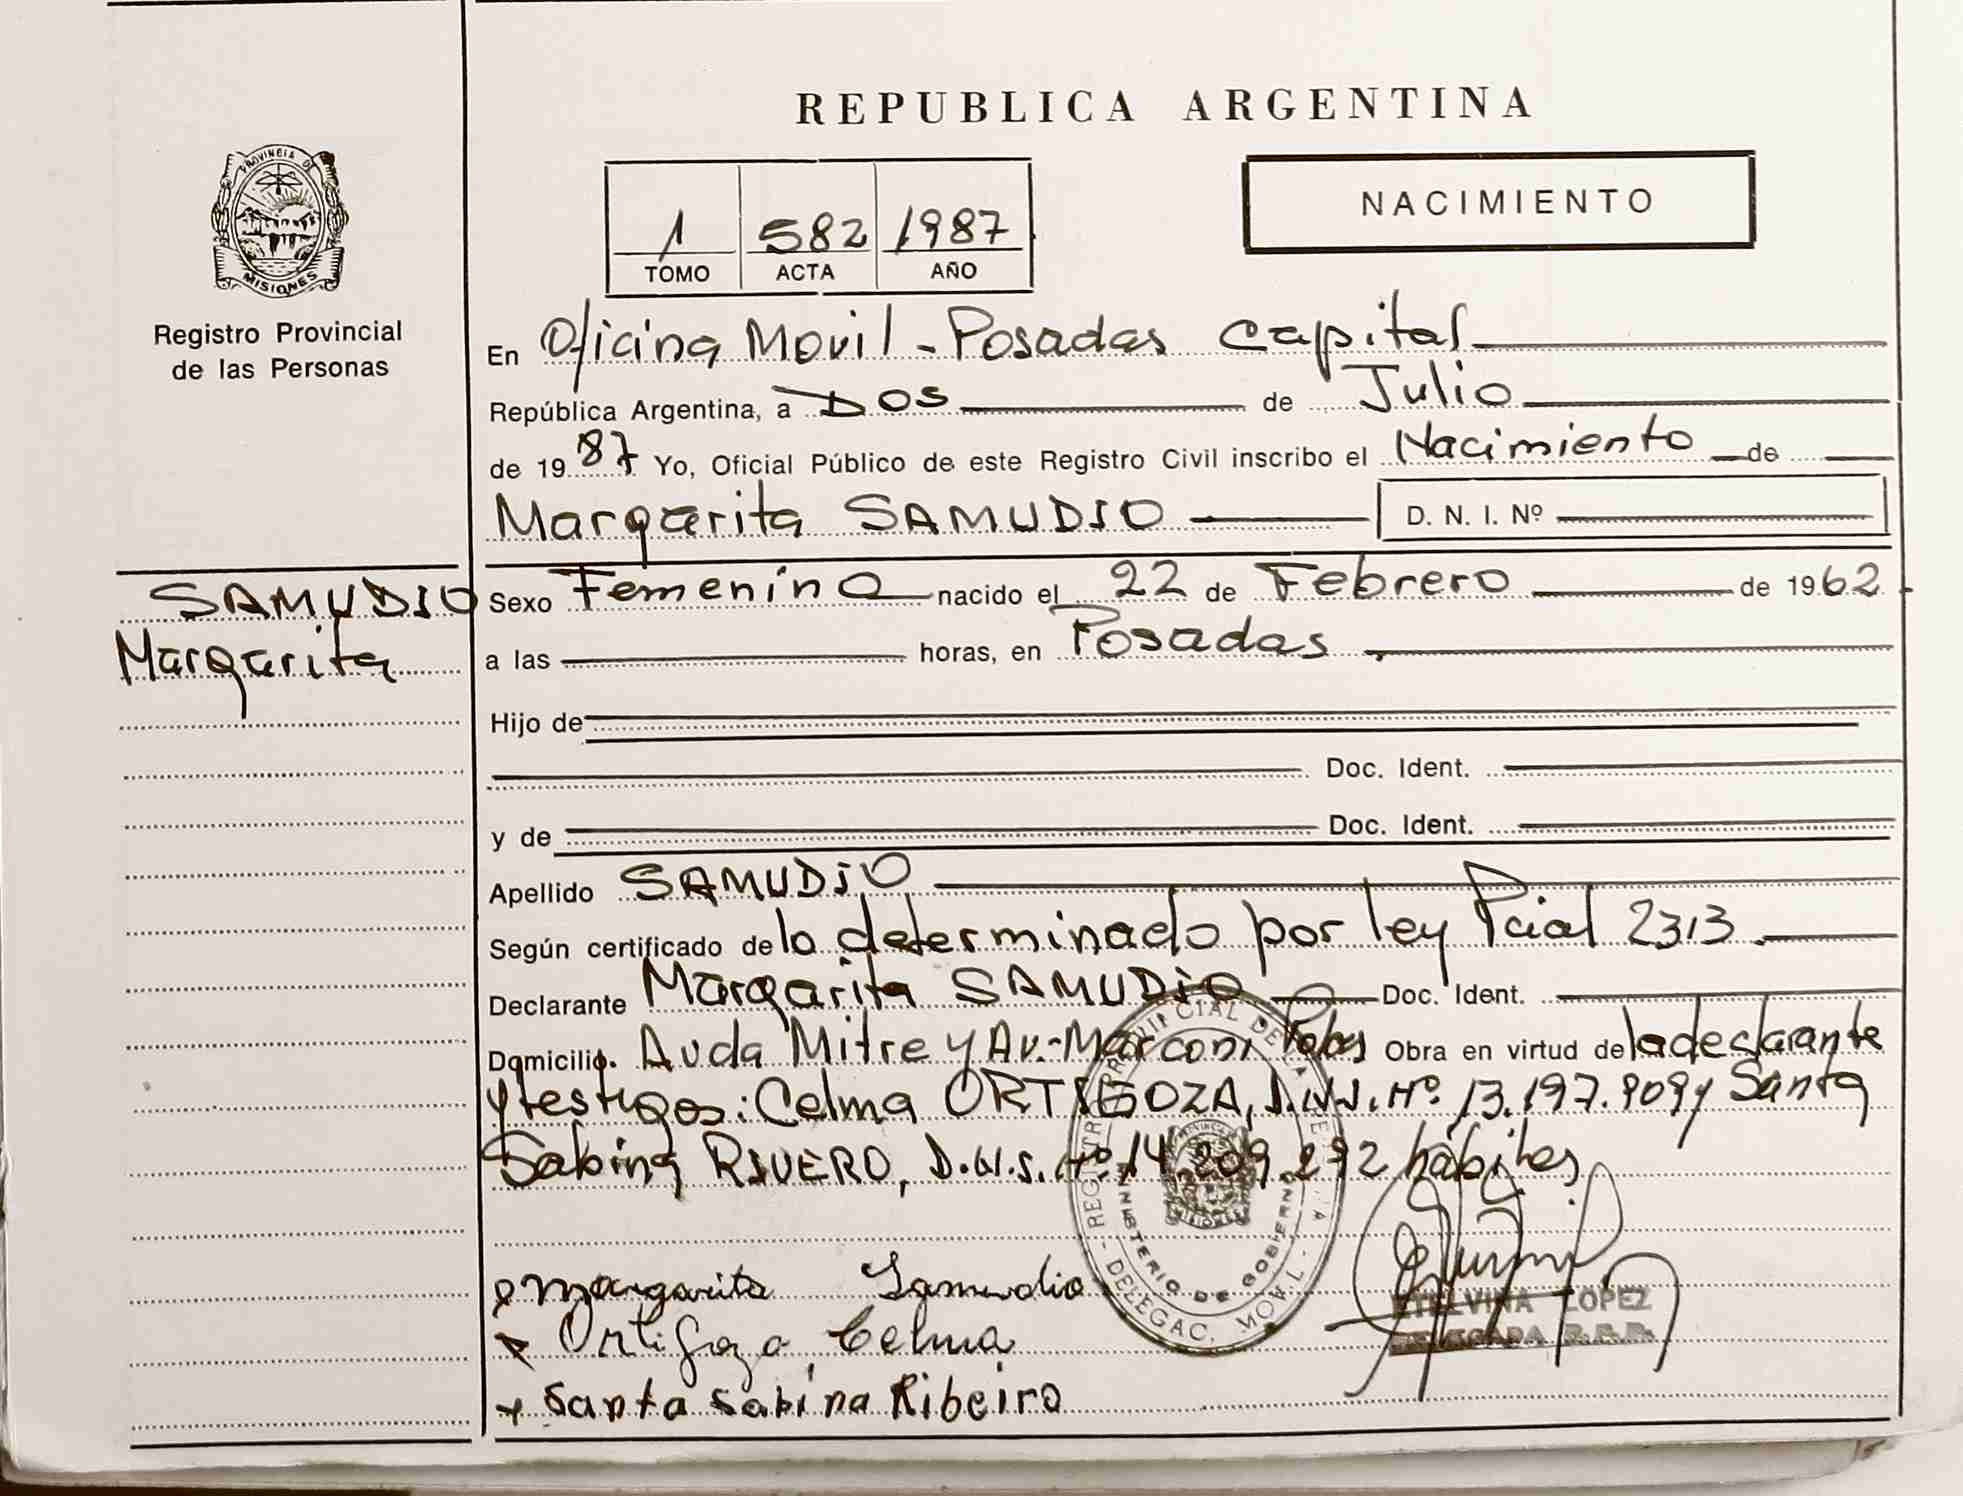 REPUBLICA ARGENTINA
PROVINCIA DE
MISIONES
Registro Provincial
de las Personas
1 582 1987
TOMO ACTA AÑO
NACIMIENTO
En Oficina Movil - Posadas Capital
República Argentina, a Dos de Julio
de 1987 Yo, Oficial Público de este Registro Civil inscribo el Nacimiento de
Margarita SAMUDIO D. N. I. Nº
SAMUDIO
Margarita
Sexo Femenino nacido el 22 de Febrero de 1962
a las horas, en Posadas
Hijo de
Doc. Ident.
y de Doc. Ident.
Apellido SAMUDIO
Según certificado de lo determinado por ley Pcial 2313
Declarante Margarita SAMUDIO Doc. Ident.
Domicilio. Avda Mitre y Av. Marconi Obra en virtud de la declarante
y testigos: Celma ORTIGOZA, D.N.I. Nº 13.197.909 y Santa
Sabina RIVERO, D.N.I. Nº 14.209.292 hábiles
REGISTRO PROVINCIAL DE LAS
MINISTERIO DE GOBIERNO
DELEGAC. MOVIL
Margarita Samudio
Ortigoza Celma
Santa Sabina Ribeiro
ETELVINA LOPEZ
DELEGADA R.P.P.